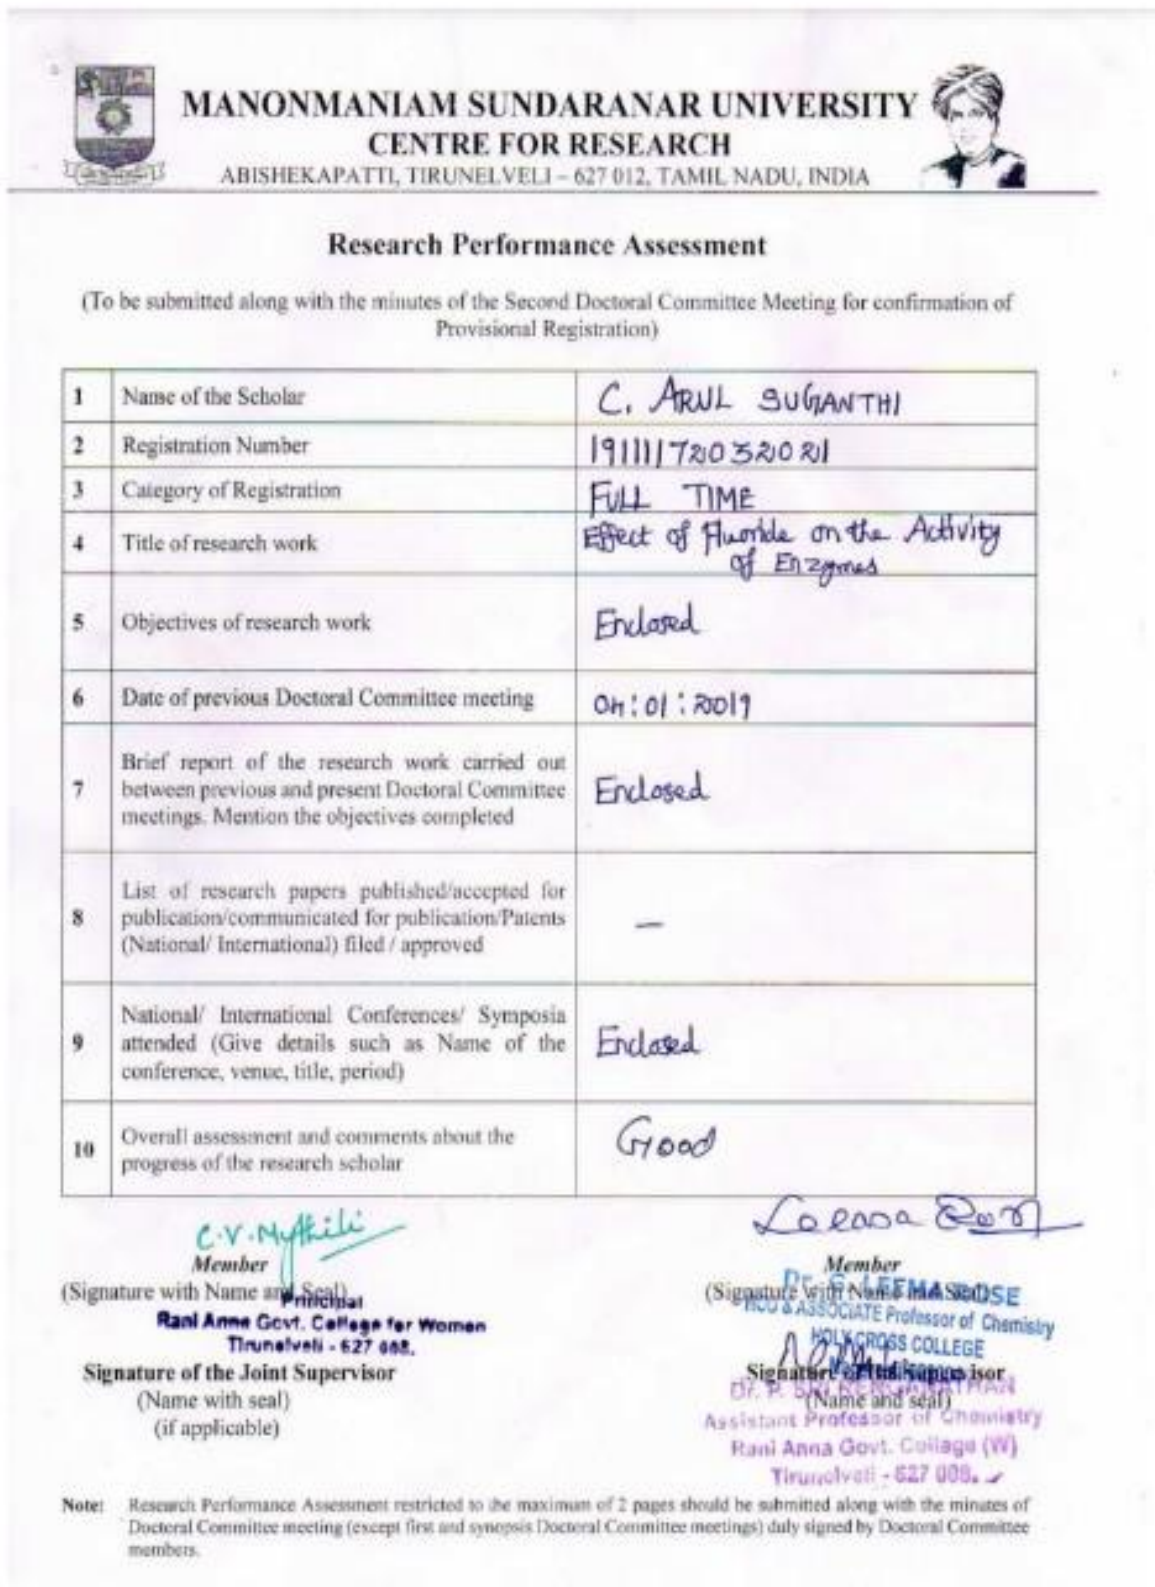 MANONMANIAM SUNDARANAR UNIVERSITY
CENTRE FOR RESEARCH
ABISHEKAPATTI, TIRUNELVELI – 627 012, TAMIL NADU, INDIA
Research Performance Assessment
(To be submitted along with the minutes of the Second Doctoral Committee Meeting for confirmation of
Provisional Registration)
1 Name of the Scholar C. ARUL SUGANTHI
2 Registration Number 19111172032021
3 Category of Registration FULL TIME
4 Title of research work Effect of Fluoride on the Activity
of Enzymes
5 Objectives of research work Enclosed
6 Date of previous Doctoral Committee meeting 04:01:2019
7 Brief report of the research work carried out
between previous and present Doctoral Committee
meetings. Mention the objectives completed
Enclosed
8 List of research papers published/accepted for
publication/communicated for publication/Patents
(National/ International) filed / approved
—
9 National/ International Conferences/ Symposia
attended (Give details such as Name of the
conference, venue, title, period)
Enclosed
10 Overall assessment and comments about the
progress of the research scholar
Good
C.V.Mythili
Member
(Signature with Name and Seal)
Principal
Rani Anna Govt. College for Women
Tirunelveli - 627 008.
Signature of the Joint Supervisor
(Name with seal)
(if applicable)
Member
(Signature with Name and Seal)
Dr. S. LEEMA ROSE
HOD & ASSOCIATE Professor of Chemistry
HOLY CROSS COLLEGE
Signature of the Supervisor
(Name and seal)
Assistant Professor of Chemistry
Rani Anna Govt. College (W)
Tirunelveli - 627 008.
Note: Research Performance Assessment restricted to the maximum of 2 pages should be submitted along with the minutes of
Doctoral Committee meeting (except first and synopsis Doctoral Committee meetings) duly signed by Doctoral Committee
members.